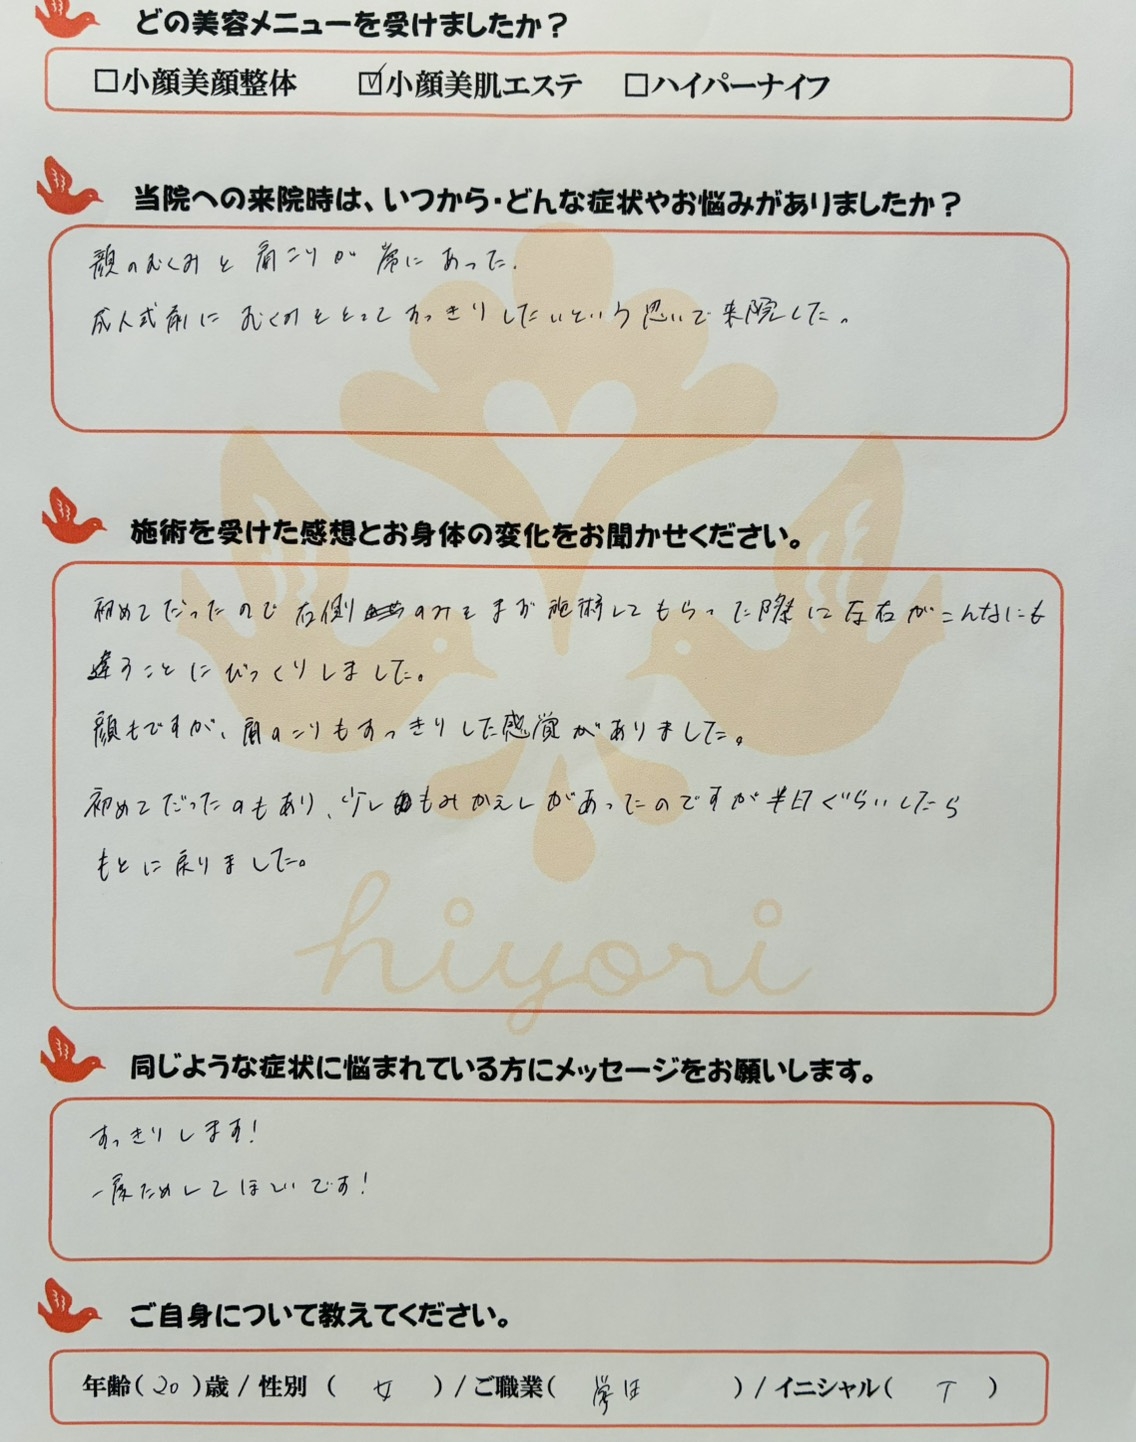 どの美容メニューを受けましたか？
□小顔美顔整体 ☑小顔美肌エステ □ハイパーナイフ
当院への来院時は、いつから・どんな症状やお悩みがありましたか？
顔のむくみと肩こりが常にあった。
成人式前にむくみをとってすっきりしたいという思いで来院した。
施術を受けた感想とお身体の変化をお聞かせください。
初めてだったので右側のみをまず施術してもらった際に左右がこんなにも
違うことにびっくりしました。
顔もですが、肩のこりもすっきりした感覚がありました。
初めてだったのもあり、少しもみかえしがあったのですが半日ぐらいしたら
もとに戻りました。
hiyori
同じような症状に悩まれている方にメッセージをお願いします。
すっきりします！
一度ためしてほしいです！
ご自身について教えてください。
年齢（20）歳 / 性別（女）/ ご職業（学生）/ イニシャル（T）